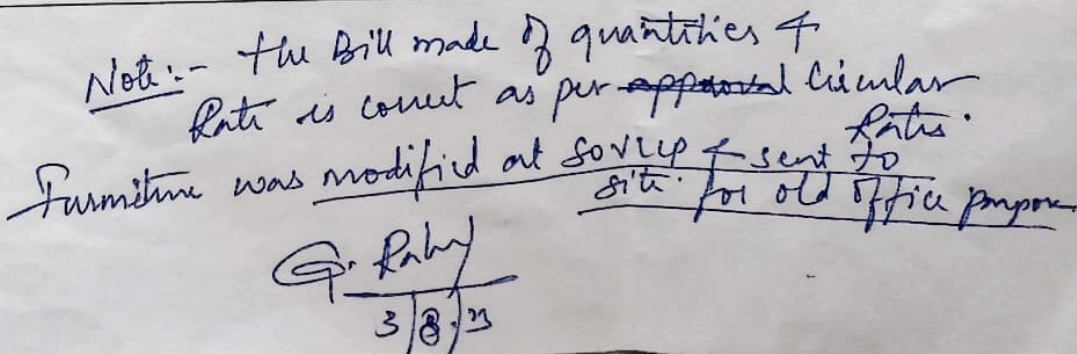 Note:- the Bill made of quantities &
Rate is correct as per approval Circular
Rates.
Furniture was modified at SOVLLP & sent to
site. for old office purpose
G. Rahul
3/8/23